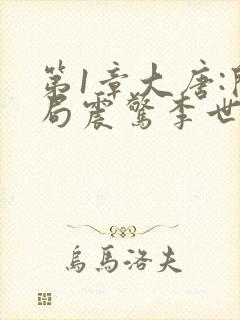 第1章大唐:
局震驚李世
烏馬洛夫